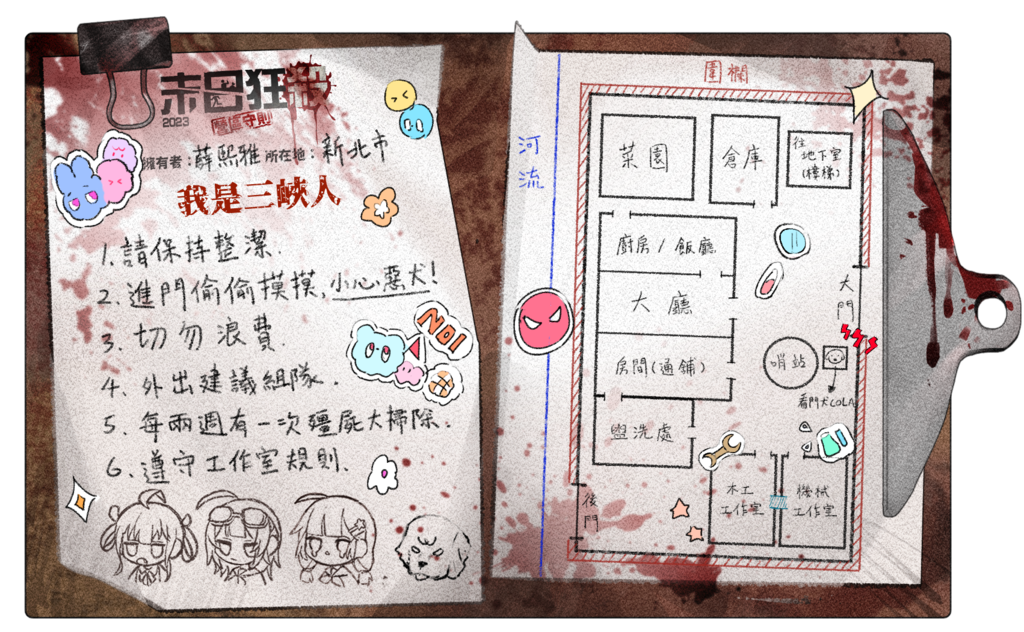 末日狂殺
2023
營區守則
擁有者：薛熙雅 所在地：新北市
我是三峽人
1. 請保持整潔.
2. 進門偷偷摸摸,小心惡犬!
3. 切勿浪費.
4. 外出建議組隊.
5. 每兩週有一次殭屍大掃除.
6. 遵守工作室規則.
NO!
圍欄
河流
菜園
倉庫
往
地下室
(樓梯)
廚房/飯廳
大廳
大門
房間(通鋪)
哨站
看門犬COLA
盥洗處
後門
木工
工作室
機械
工作室